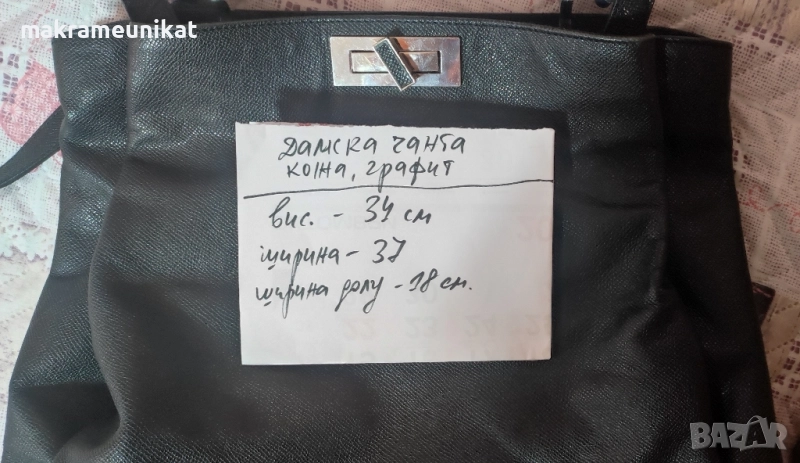 makrameunikat
дамска чанта
кожа, графит
вис. - 34 см
ширина - 37
ширина долу - 18 см.
BAZAR